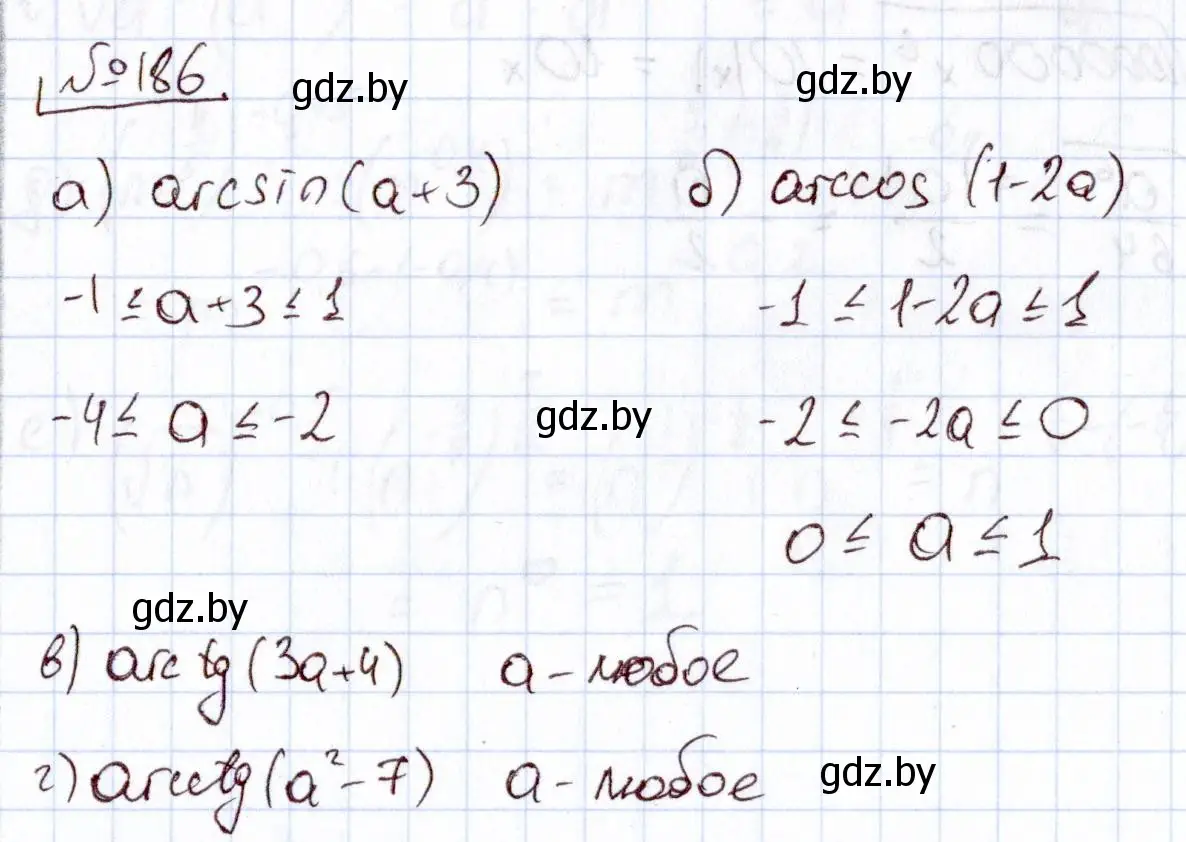 №186.
gdz.by
gdz.by
а) arcsin(a+3)
б) arccos (1-2a)
-1 ≤ a+3 ≤ 1
-1 ≤ 1-2a ≤ 1
-4 ≤ a ≤ -2
gdz.by
-2 ≤ -2a ≤ 0
0 ≤ a ≤ 1
gdz.by
в) arctg(3a+4) a - любое
г) arcctg(a²-7) a - любое
gdz.by